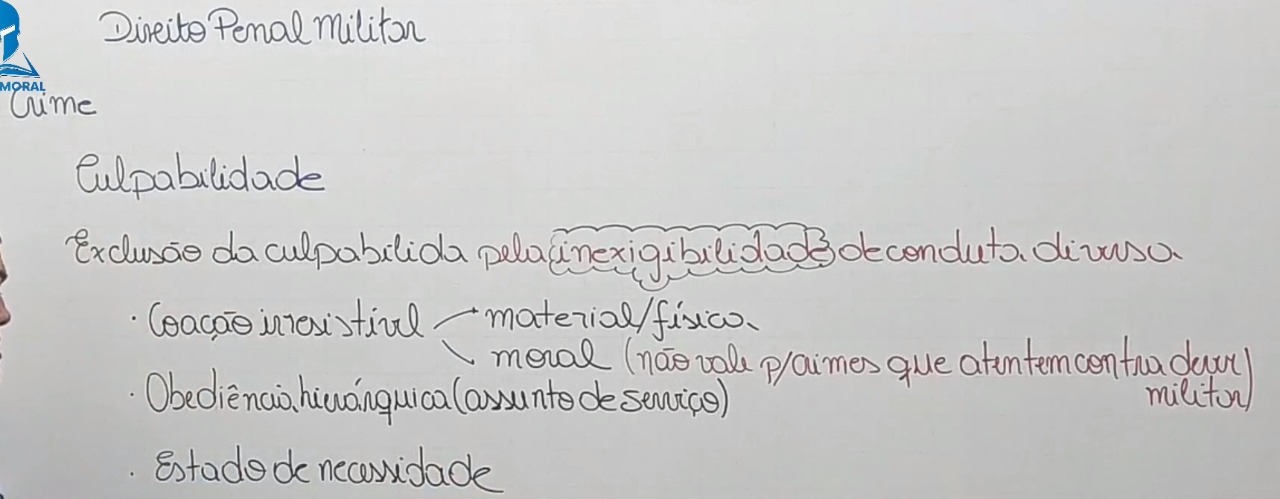 Direito Penal Militar
MORAL
Crime
Culpabilidade
Exclusão da culpabilida pela inexigibilidade de conduta diversa
· Coação irresistível material/física
moral (não vale p/crimes que atentem contra dever
militar)
· Obediência hierárquica (assunto de serviço)
· Estado de necessidade